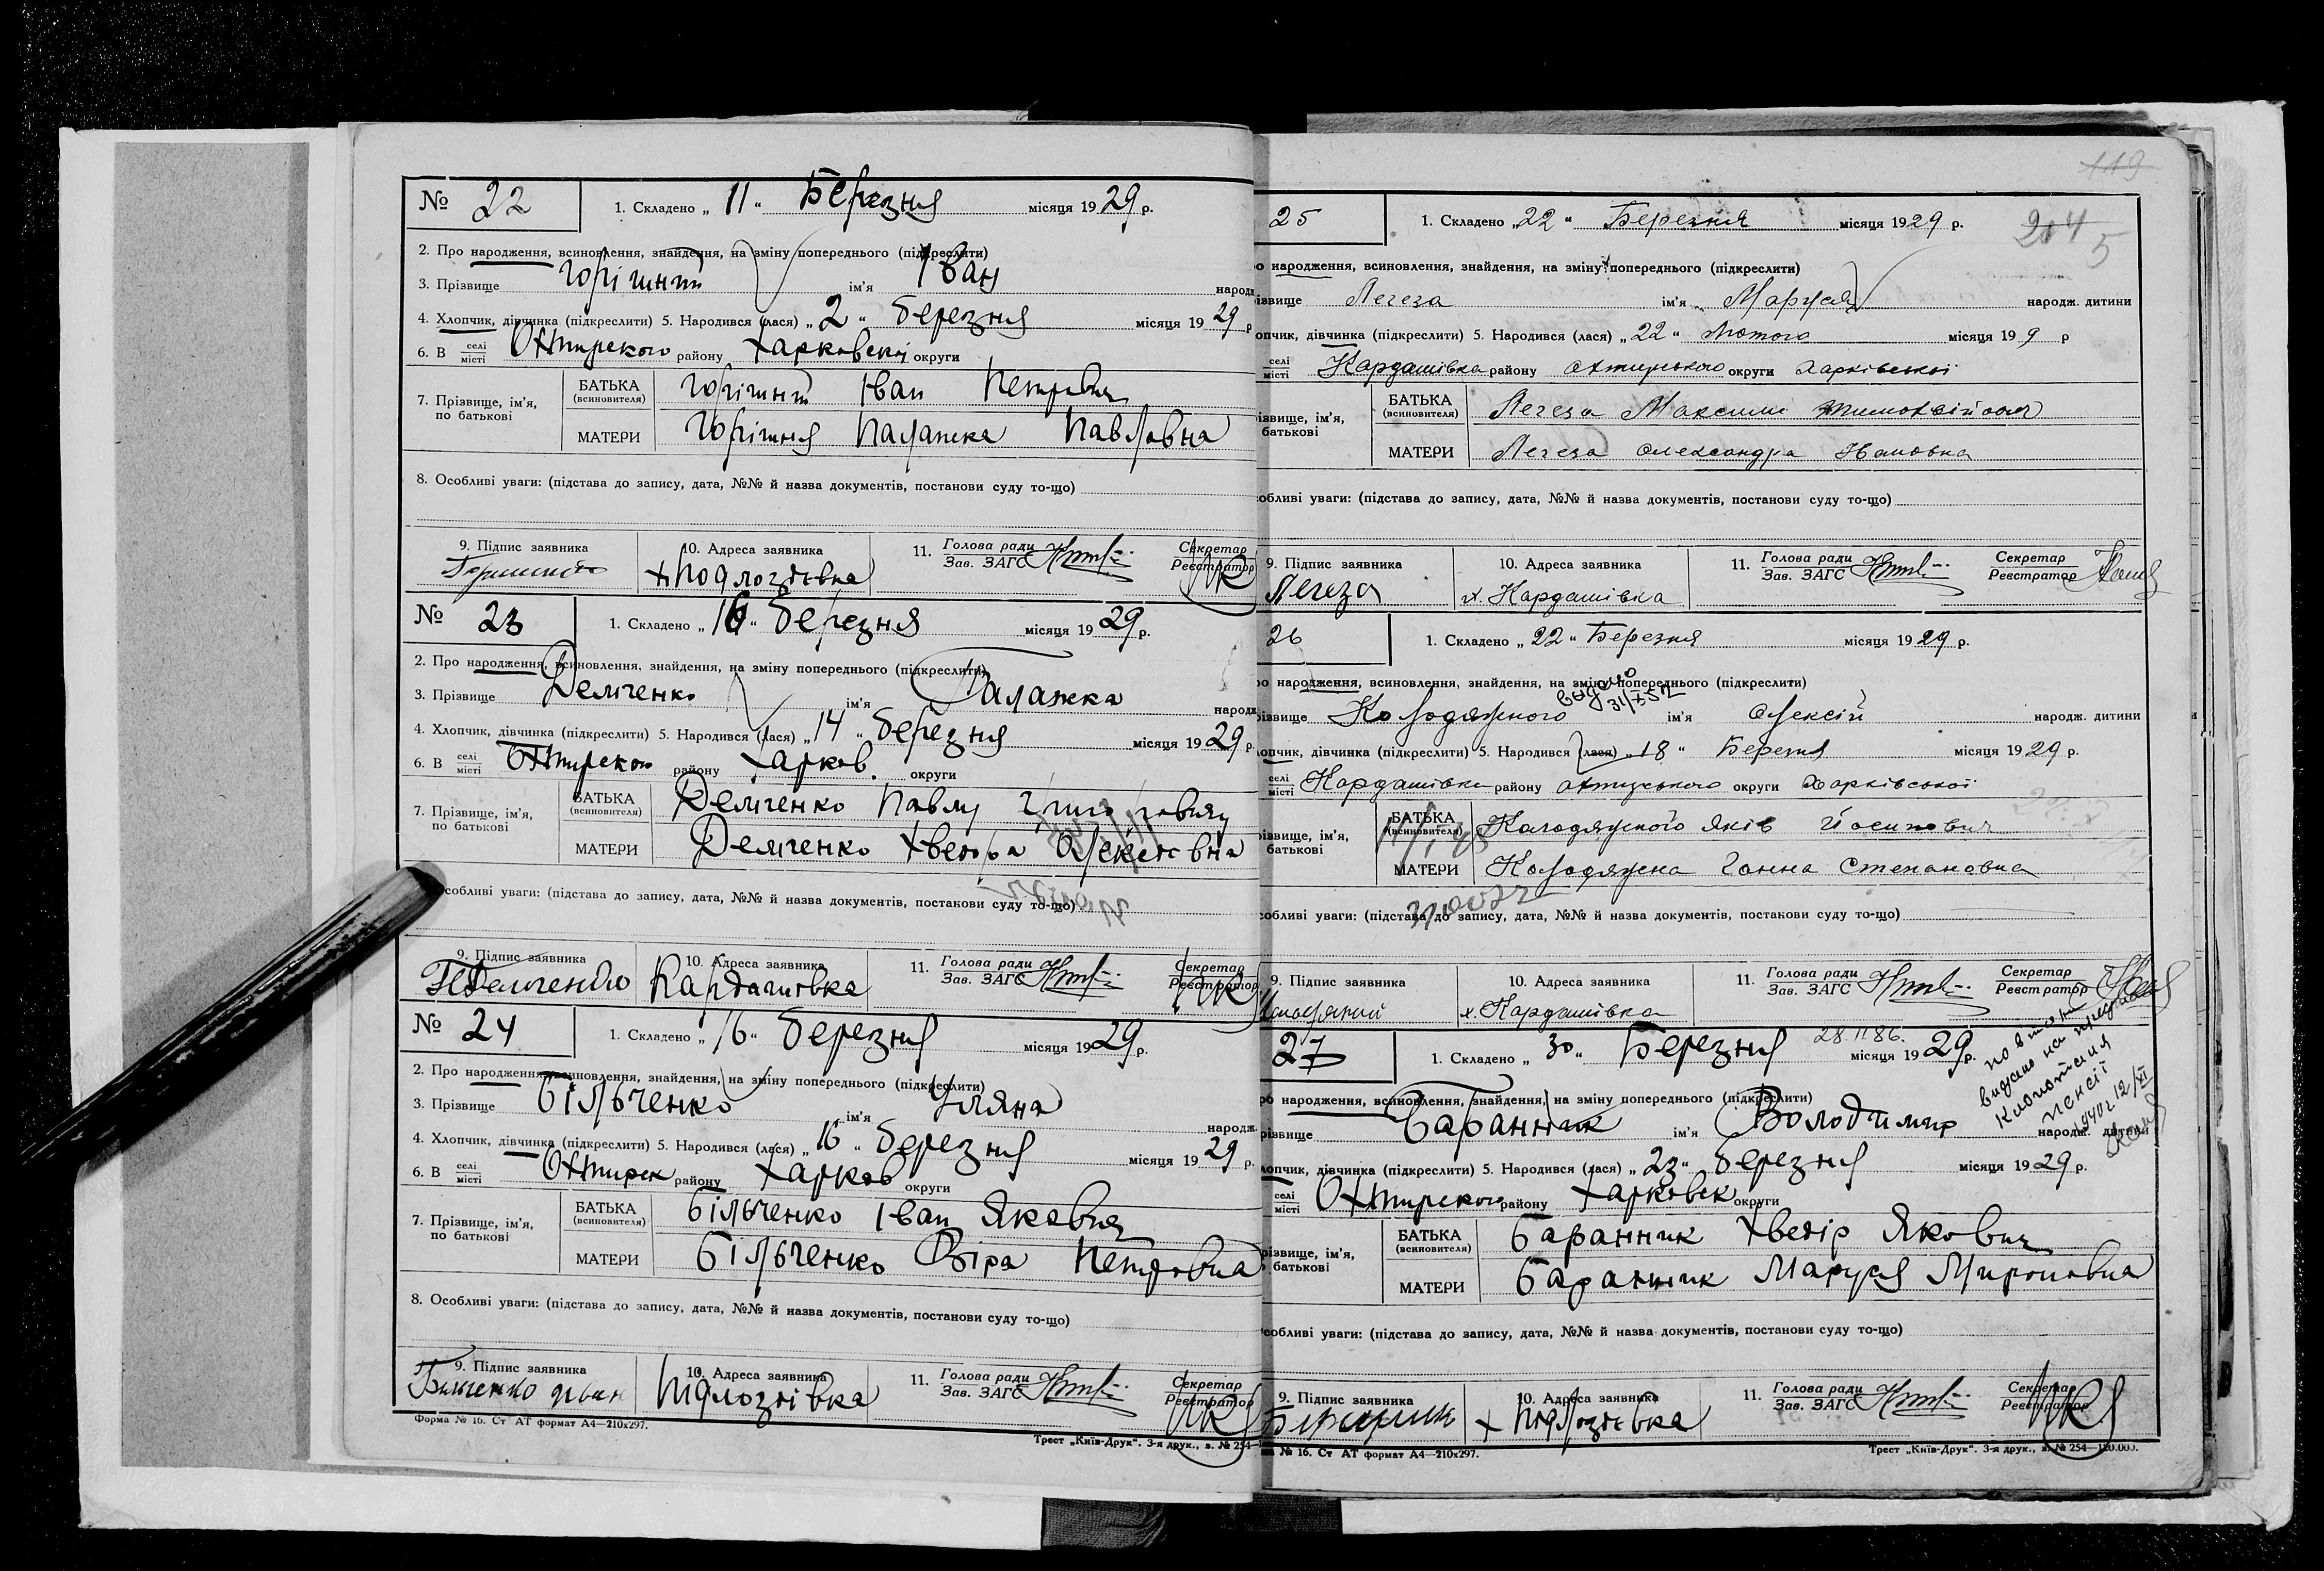 № 22 1. Складено „ 11 “ Березня місяця 1929 р.
2. Про народження, всиновлення, знайдення, на зміну попереднього (підкреслити)
3. Прізвище Горішній ім'я Іван народж
4. Хлопчик, дівчинка (підкреслити) 5. Народився (лася) „ 2 “ березня місяця 1929 р
6. В селі місті Охтирского району Харковскої округи
7. Прізвище, ім'я, по батькові
БАТЬКА (всиновителя) Горішній Іван Петрович
МАТЕРИ Горішня Палажка Павловна
8. Особливі уваги: (підстава до запису, дата, №№ й назва документів, постанови суду то-що)
9. Підпис заявника 10. Адреса заявника 11. Голова ради Зав. ЗАГС Секретар Реєстратор
х Подлозіевка
№ 23 1. Складено „ 16 “ березня місяця 1929 р.
2. Про народження, всиновлення, знайдення, на зміну попереднього (підкреслити)
3. Прізвище Демченко ім'я Палажка народж
4. Хлопчик, дівчинка (підкреслити) 5. Народився (лася) „ 14 “ березня місяця 1929 р.
6. В селі місті Охтирского району Харков. округи
7. Прізвище, ім'я, по батькові
БАТЬКА (всиновителя) Демченко Павло Григорович
МАТЕРИ Демченко Хведора Олексієвна
собливі уваги: (підстава до запису, дата, №№ й назва документів, постанови суду то-що)
9. Підпис заявника 10. Адреса заявника 11. Голова ради Зав. ЗАГС Секретар Реєстратор
Демченко Кардашовка
№ 24 1. Складено „ 16 “ березня місяця 1929 р.
2. Про народження, всиновлення, знайдення, на зміну попереднього (підкреслити)
3. Прізвище Більченко ім'я Уляна народж.
4. Хлопчик, дівчинка (підкреслити) 5. Народився (лася) „ 16 “ березня місяця 1929 р.
6. В селі місті Охтирск району Харков округи
7. Прізвище, ім'я, по батькові
БАТЬКА (всиновителя) Більченко Іван Якович
МАТЕРИ Більченко Віра Петровна
8. Особливі уваги: (підстава до запису, дата, №№ й назва документів, постанови суду то-що)
9. Підпис заявника 10. Адреса заявника 11. Голова ради Зав. ЗАГС Секретар Реєстратор
Бильченко Иван Підлозіївка
Форма № 16. Ст АТ формат А4—210х297.
Трест „Київ-Друк“. 3-я друк., з. № 254—
119
204 5
25 1. Складено „ 22 “ Березня місяця 1929 р.
о народження, всиновлення, знайдення, на зміну попереднього (підкреслити)
ізвище Легеза ім'я Маруся народж. дитини
опчик, дівчинка (підкреслити) 5. Народився (лася) „ 22 “ Лютого місяця 19 9 р
селі місті Кардашівка району Охтирського округи Харківської
ізвище, ім'я, батькові
БАТЬКА (всиновителя) Легеза Максим Тимофійович
МАТЕРИ Легеза Олександра Івановна
обливі уваги: (підстава до запису, дата, №№ й назва документів, постанови суду то-що)
9. Підпис заявника 10. Адреса заявника 11. Голова ради Зав. ЗАГС Секретар Реєстратор
Легеза х. Кардашівка
26 1. Складено „ 22 “ Березня місяця 1929 р.
о народження, всиновлення, знайдення, на зміну попереднього (підкреслити)
ізвище Колодяжного ім'я Олексій народж. дитини
опчик, дівчинка (підкреслити) 5. Народився (лася) „ 18 “ Березня місяця 1929 р.
селі місті Кардашівка району Охтирського округи Харківської
ізвище, ім'я, батькові
БАТЬКА (всиновителя) Колодяжного Яків Йосипович
МАТЕРИ Колодяжна Ганна Степановна
обливі уваги: (підстава до запису, дата, №№ й назва документів, постанови суду то-що)
9. Підпис заявника 10. Адреса заявника 11. Голова ради Зав. ЗАГС Секретар Реєстратор
х. Кардашівка
27 1. Складено „ 30 “ Березня місяця 1929 р.
о народження, всиновлення, знайдення, на зміну попереднього (підкреслити)
різвище Баранник ім'я Володимир народж. дитини
опчик, дівчинка (підкреслити) 5. Народився (лася) „ 23 “ березня місяця 1929 р.
селі місті Охтирского району Харковск округи
різвище, ім'я, батькові
БАТЬКА (всиновителя) Баранник Хведір Якович
МАТЕРИ Баранник Маруся Мироновна
видано на
пенсії
1940 г 12/XI
собливі уваги: (підстава до запису, дата, №№ й назва документів, постанови суду то-що)
9. Підпис заявника 10. Адреса заявника 11. Голова ради Зав. ЗАГС Секретар Реєстратор
х Підлозіевка
№ 16. Ст АТ формат А4—210х297.
Трест „Київ-Друк“. 3-я друк., з. № 254—120.000.